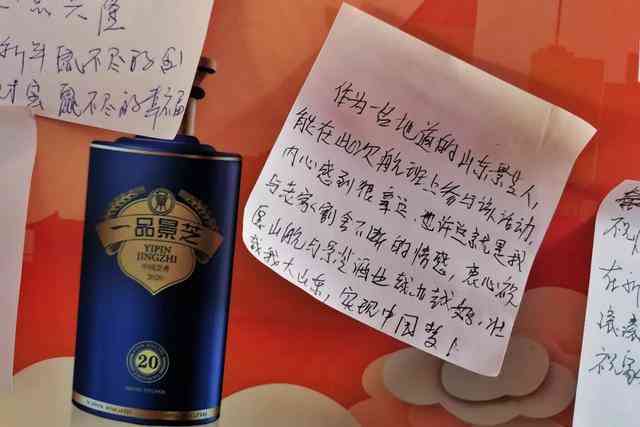 一品兴隆
新年鼠不尽的创
财富鼠不尽的幸福
一品景芝
YIPIN
JINGZHI
中国芝香
2020
20
作为一名地道的山东景芝人,
能在此次航班上参与该活动,
内心感到很幸运。也许这就是我
与老家割舍不断的情感,衷心祝
愿山航与景芝酒业越办越好,壮
我大山东,实现中国梦!
祝
在新
滚滚
祝家